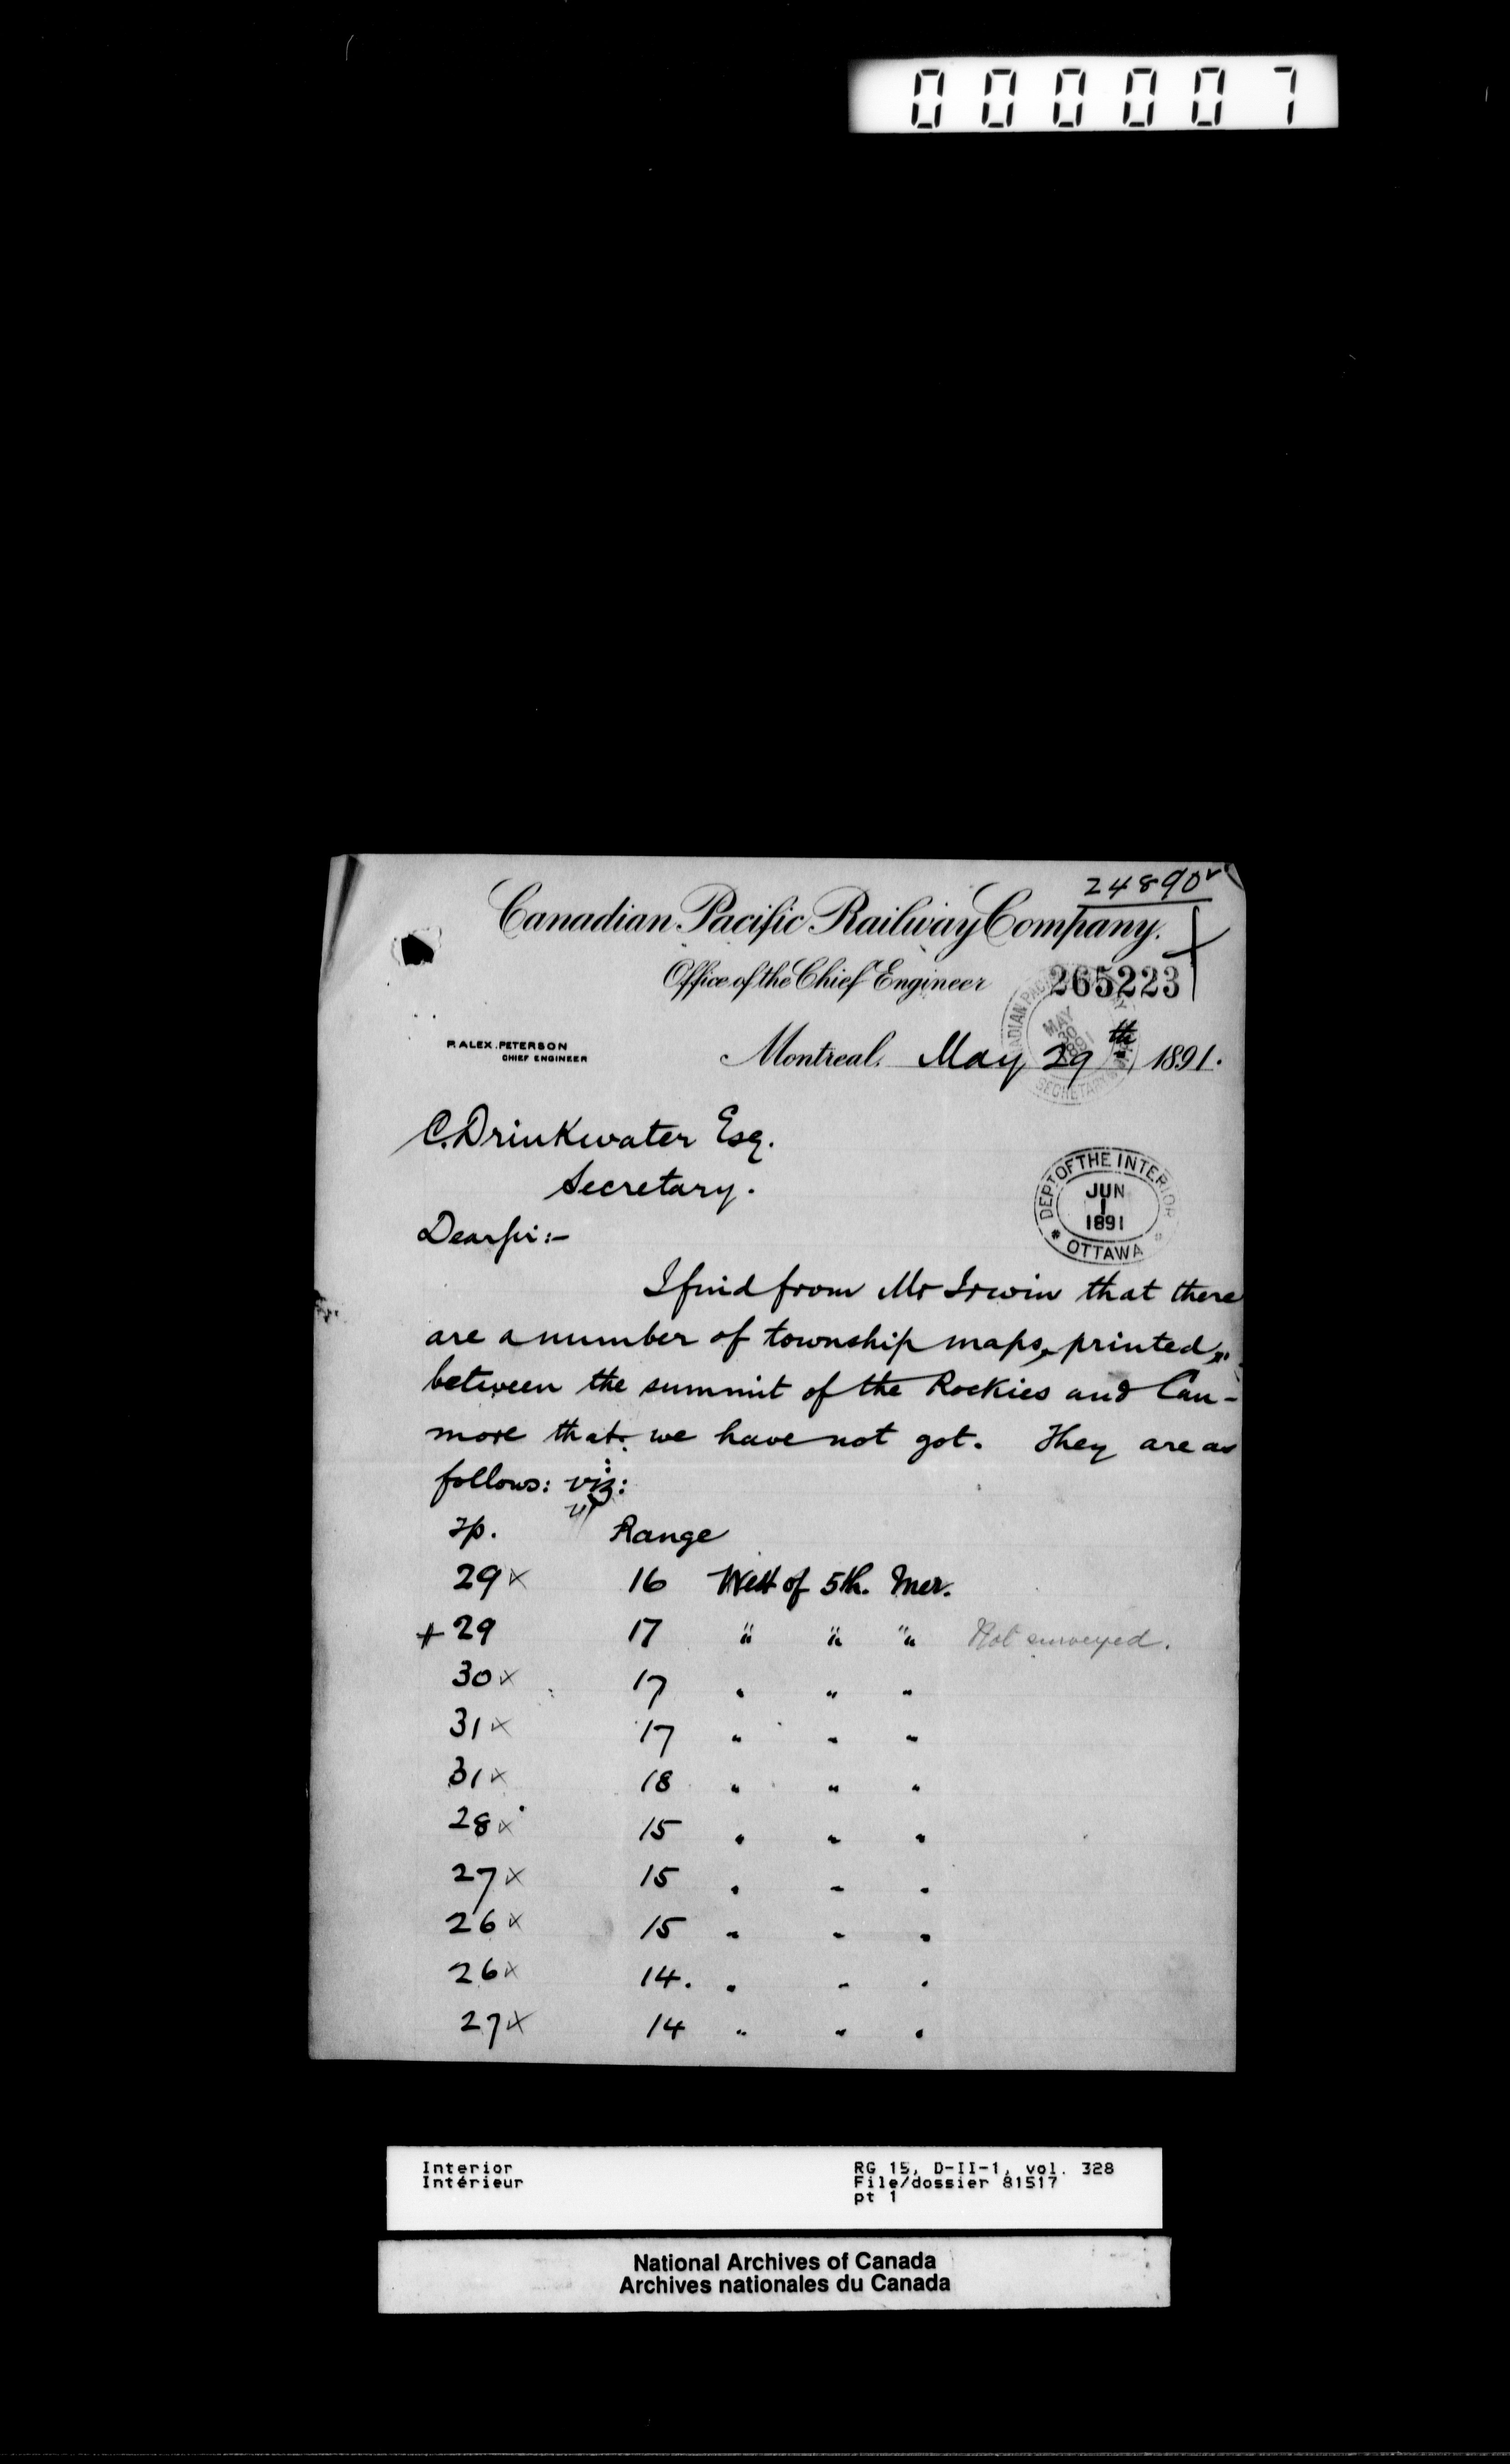 000007
24890
Canadian Pacific Railway Company.
Office of the Chief Engineer
265223
P. ALEX. PETERSON
CHIEF ENGINEER
Montreal. May 29th 1891.
MAY
30
1891
SECRETARY
C. Drinkwater Esq.
Secretary.
DEPT OF THE INTERIOR
JUN
1
1891
OTTAWA
Dear Sir:-
I find from Mr Irwin that there
are a number of township maps, printed,
between the summit of the Rockies and Can-
more that we have not got. They are as
follows: viz:
Tp. Range
29 x 16 West of 5th. Mer.
+ 29 17 " " " Not surveyed.
30 x 17 " " "
31 x 17 " " "
31 x 18 " " "
28 x 15 " " "
27 x 15 " " "
26 x 15 " " "
26 x 14. " " "
27 x 14 " " "
Interior
Intérieur
RG 15, D-II-1, vol. 328
File/dossier 81517
pt 1
National Archives of Canada
Archives nationales du Canada